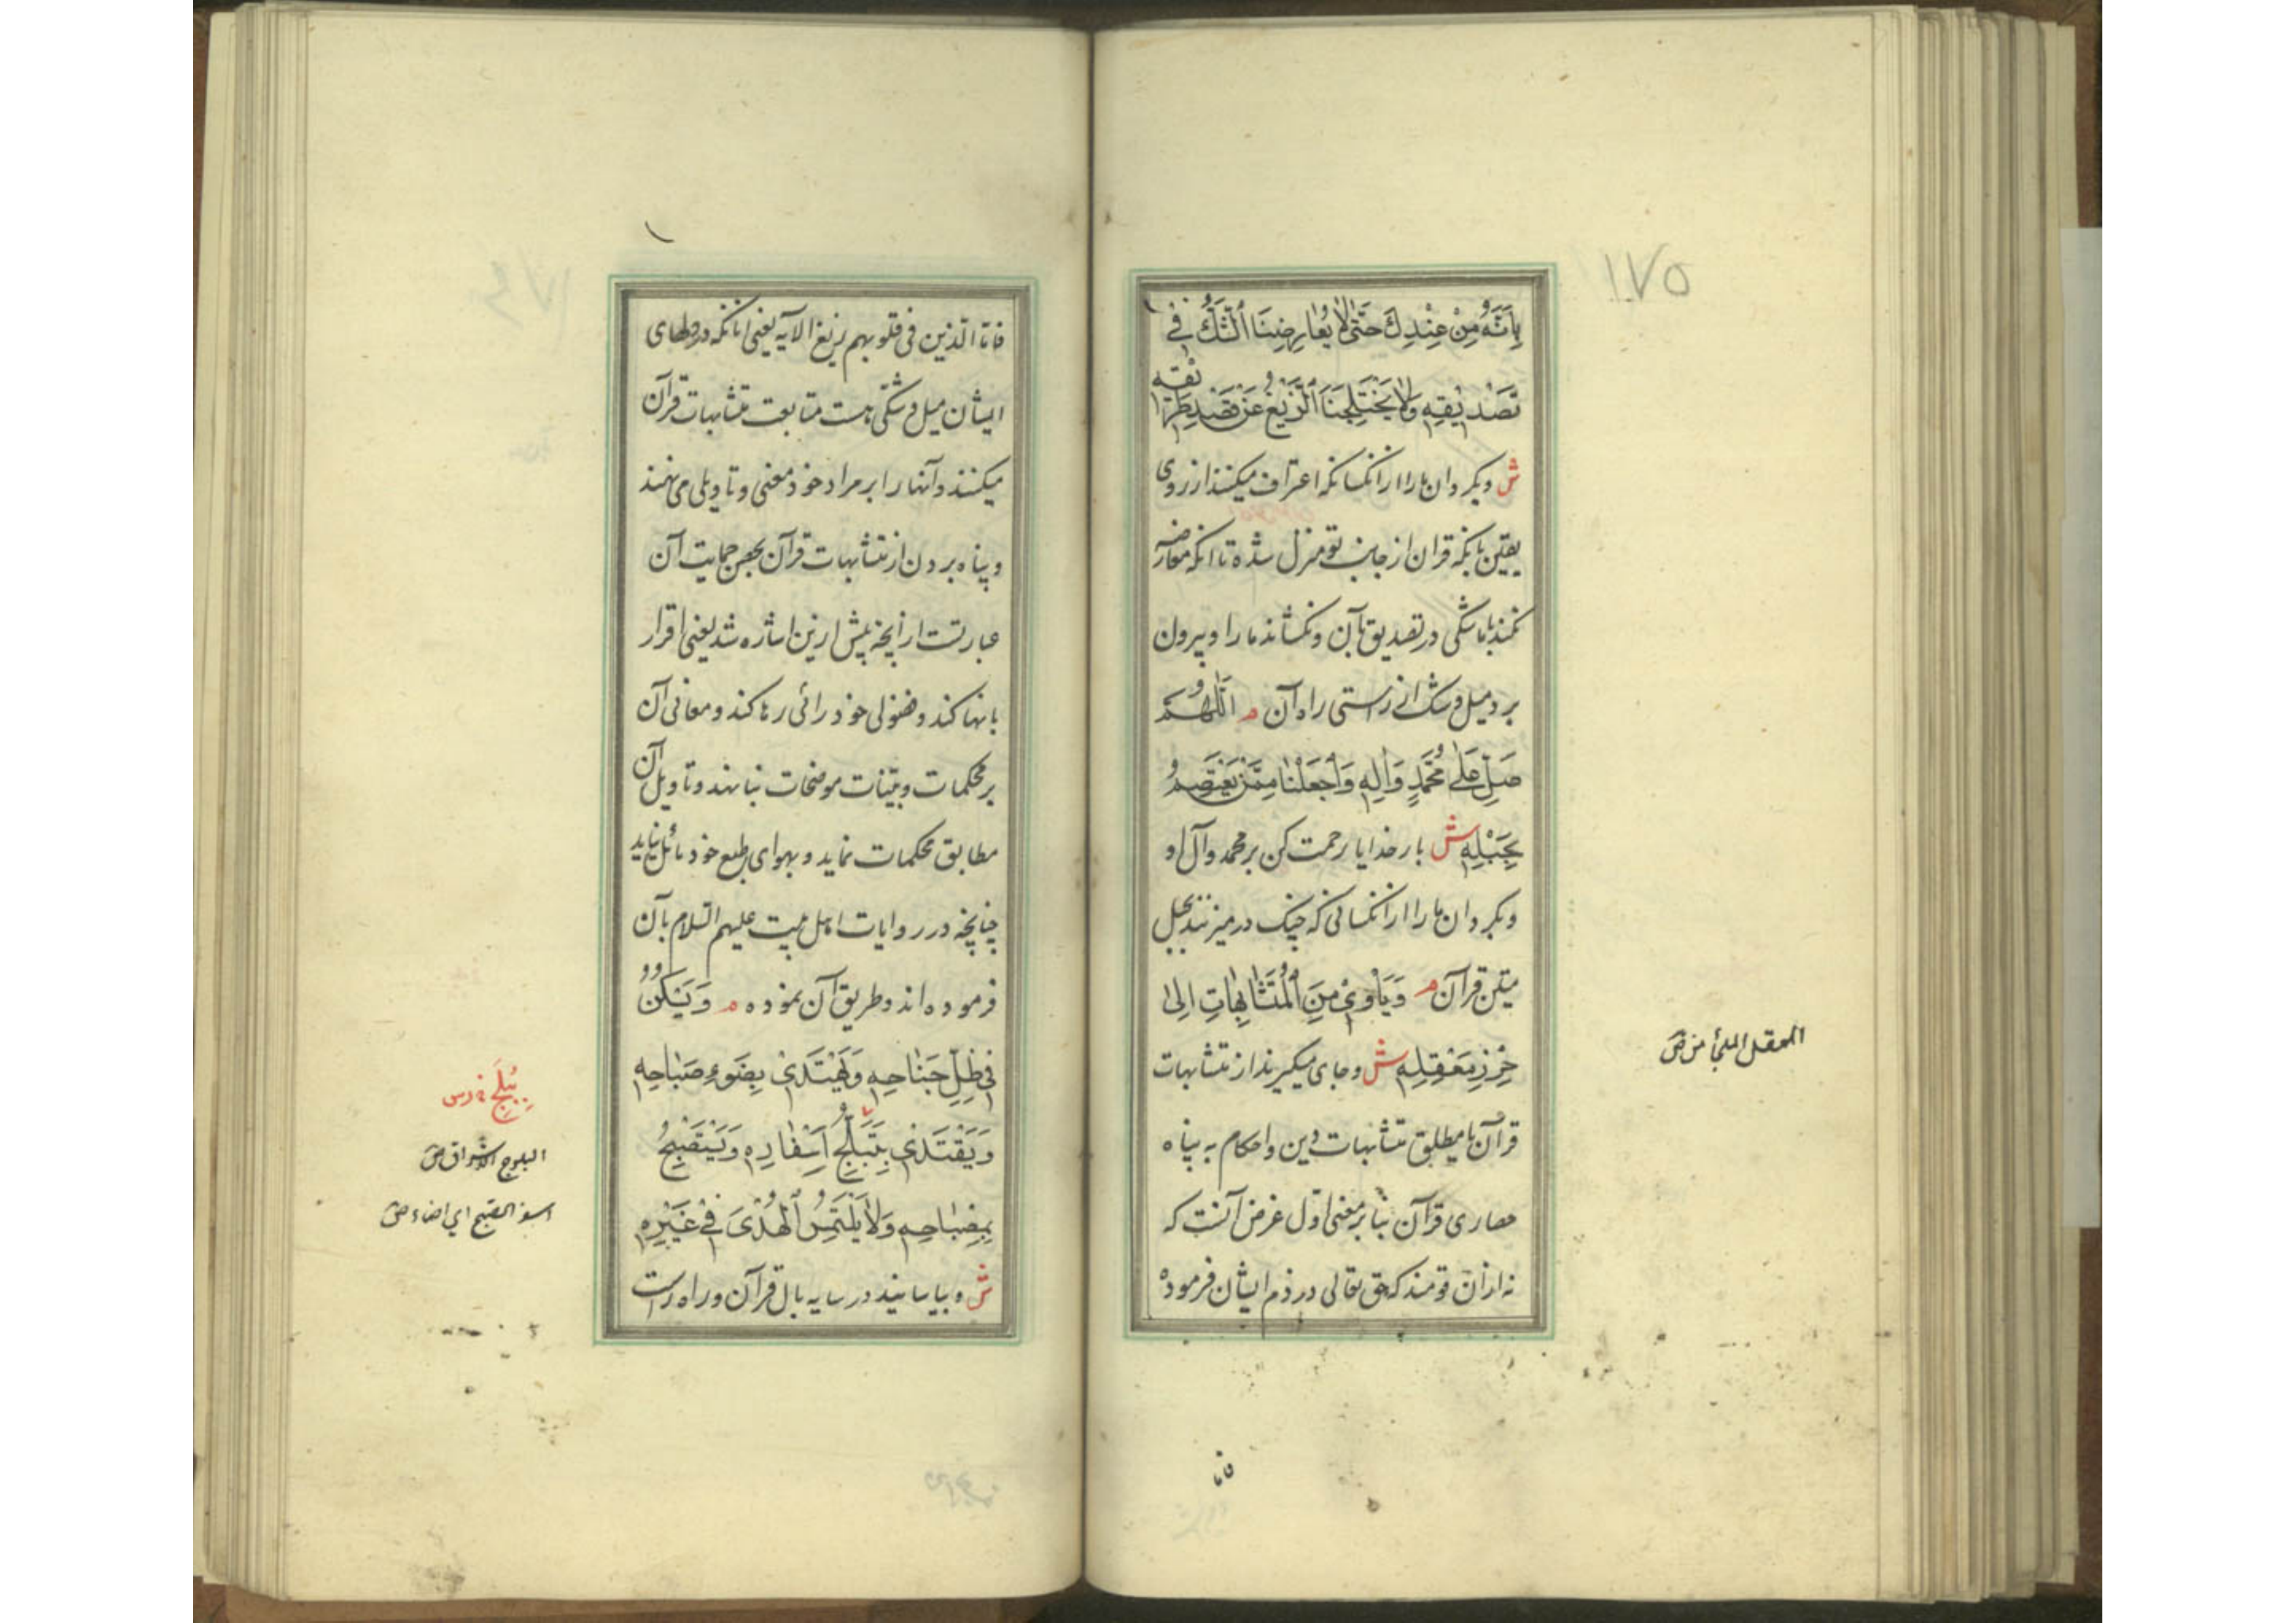 ١٧٥
بِاَنَّهُ مِنْ عِنْدِكَ حَتّٰى لٰا يُعٰارِضَنَا الشَّكُّ فِي
تَصْدِيْقِهِ وَلٰا يَخْتَلِجَنَا الزَّيْغُ عَنْ قَصْدِ طَرِيْقِهِ
ش وبكردان ما را از آنكسانكه اعتراف ميكنند از روى
يقين بانكه قران از جانب تو منزل شده تا انكه معارضه
نكند با ما شكى در تصديق بآن ونكشاند ما را وبيرون
برد ميل وشك از راستى راه آن م اَللّٰهُمَّ
صَلِّ عَلٰى مُحَمَّدٍ وَاٰلِهِ وَاجْعَلْنٰا مِمَّنْ يَعْتَصِمُ
بِحَبْلِهِ ش بار خدايا رحمت كن بر محمد وآل او
وبكردان ما را از آنكسانى كه چنك در ميزنند بحبل
متين قرآن م وَيَأْوِيْ مِنَ الْمُتَشٰابِهٰاتِ اِلٰى
حِرْزِ مَعْقِلِهِ ش وجاى ميكيرند از متشابهات
قرآن يا مطلق متشابهات دين واحكام به پناه
حصارى قرآن بنا بر معنى اول غرض آنست كه
نه از آن قومند كه حق تعالى در ذم ايشان فرموده
المعقل الملجأ من ص
فاما
فاما الّذين فى قلوبهم زيغ الايه يعنى انانكه در دلهاى
ايشان ميل وشكى هست متابعت متشابهات قرآن
ميكنند وآنها را بر مراد خود معنى وتاويل مى نهند
وپناه بردن از متشابهات قرآن بحصن حمايت آن
عبارتست از آنچه پيش ازين اشاره شد يعنى اقرار
بانها كند وفضولى خود رائى رها كند ومعانى آن
بر محكمات وبيّنات موضحات بنا نهد وتاويل آن
مطابق محكمات نمايد وبهواى طبع خود مائل نيايد
چنانچه در روايات اهل بيت عليهم السلام بآن
فرموده اند وطريق آن نموده م وَيَسْكُنُ
فِي ظِلِّ جَنٰاحِهِ وَيَهْتَدِيْ بِضَوْءِ صَبٰاحِهِ
وَيَقْتَدِيْ بِتَبَلُّجِ اَسْفٰارِهِ وَيَسْتَصْبِحُ
بِمِصْبٰاحِهِ وَلٰا يَلْتَمِسُ الْهُدٰى فِيْ غَيْرِهِ
ش وبياسانيد در سايه بال قرآن وراه راست
بِبَلَجِ خ دس
البلوج الاشراق ص
اسفر الصبح اي اضاء ص